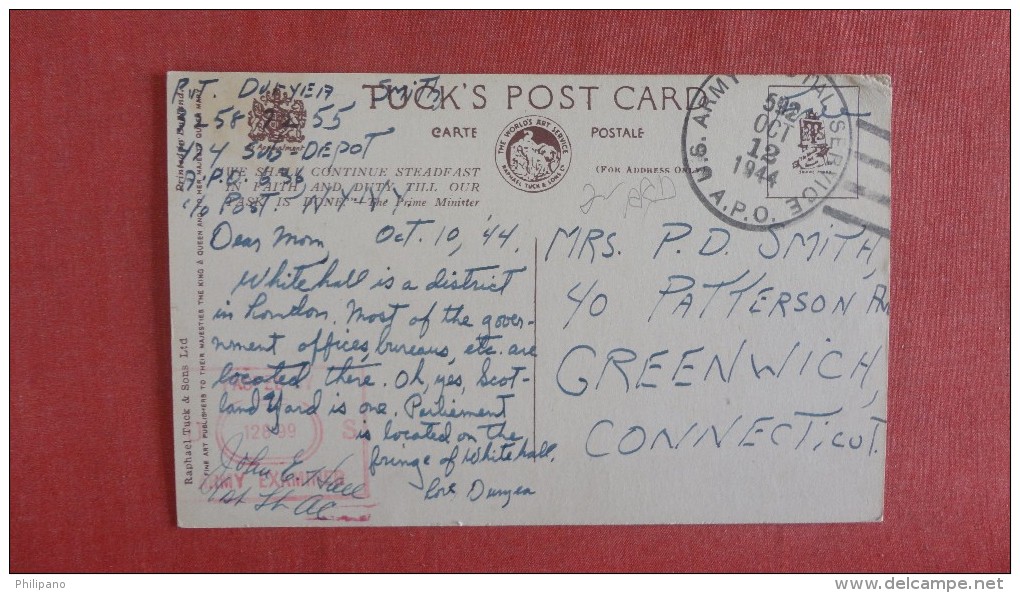 PVT. DURYEA SMITH
TUCK'S POST CARD
CARTE POSTALE
(FOR ADDRESS ONLY)
THE WORLD'S ART SERVICE
RAPHAEL TUCK & SONS LTD
474 SUB-DEPOT
A.P.O.
WE SHALL CONTINUE STEADFAST
IN FAITH AND DUTY TILL OUR
TASK IS DONE. The Prime Minister
c/o POST. N.Y. NY
U.S. ARMY POSTAL SERVICE
A.P.O.
OCT
12
1944
Dear Mom, Oct. 10, '44.
Whitehall is a district
in London. Most of the gover-
nment offices, bureaus, etc. are
located there. Oh, yes, Scot-
land Yard is one. Parliement
is located on the
fringe of Whitehall.
Love Duryea
John E. Hall
1st Lt AC
PASSED
ARMY EXAMINER
MRS. P.D. SMITH,
40 PATTERSON AV
GREENWICH,
CONNECTICUT
Raphael Tuck & Sons Ltd
FINE ART PUBLISHERS TO THEIR MAJESTIES THE KING & QUEEN AND TO HER MAJESTY QUEEN MARY
Philipano
www.delcampe.net